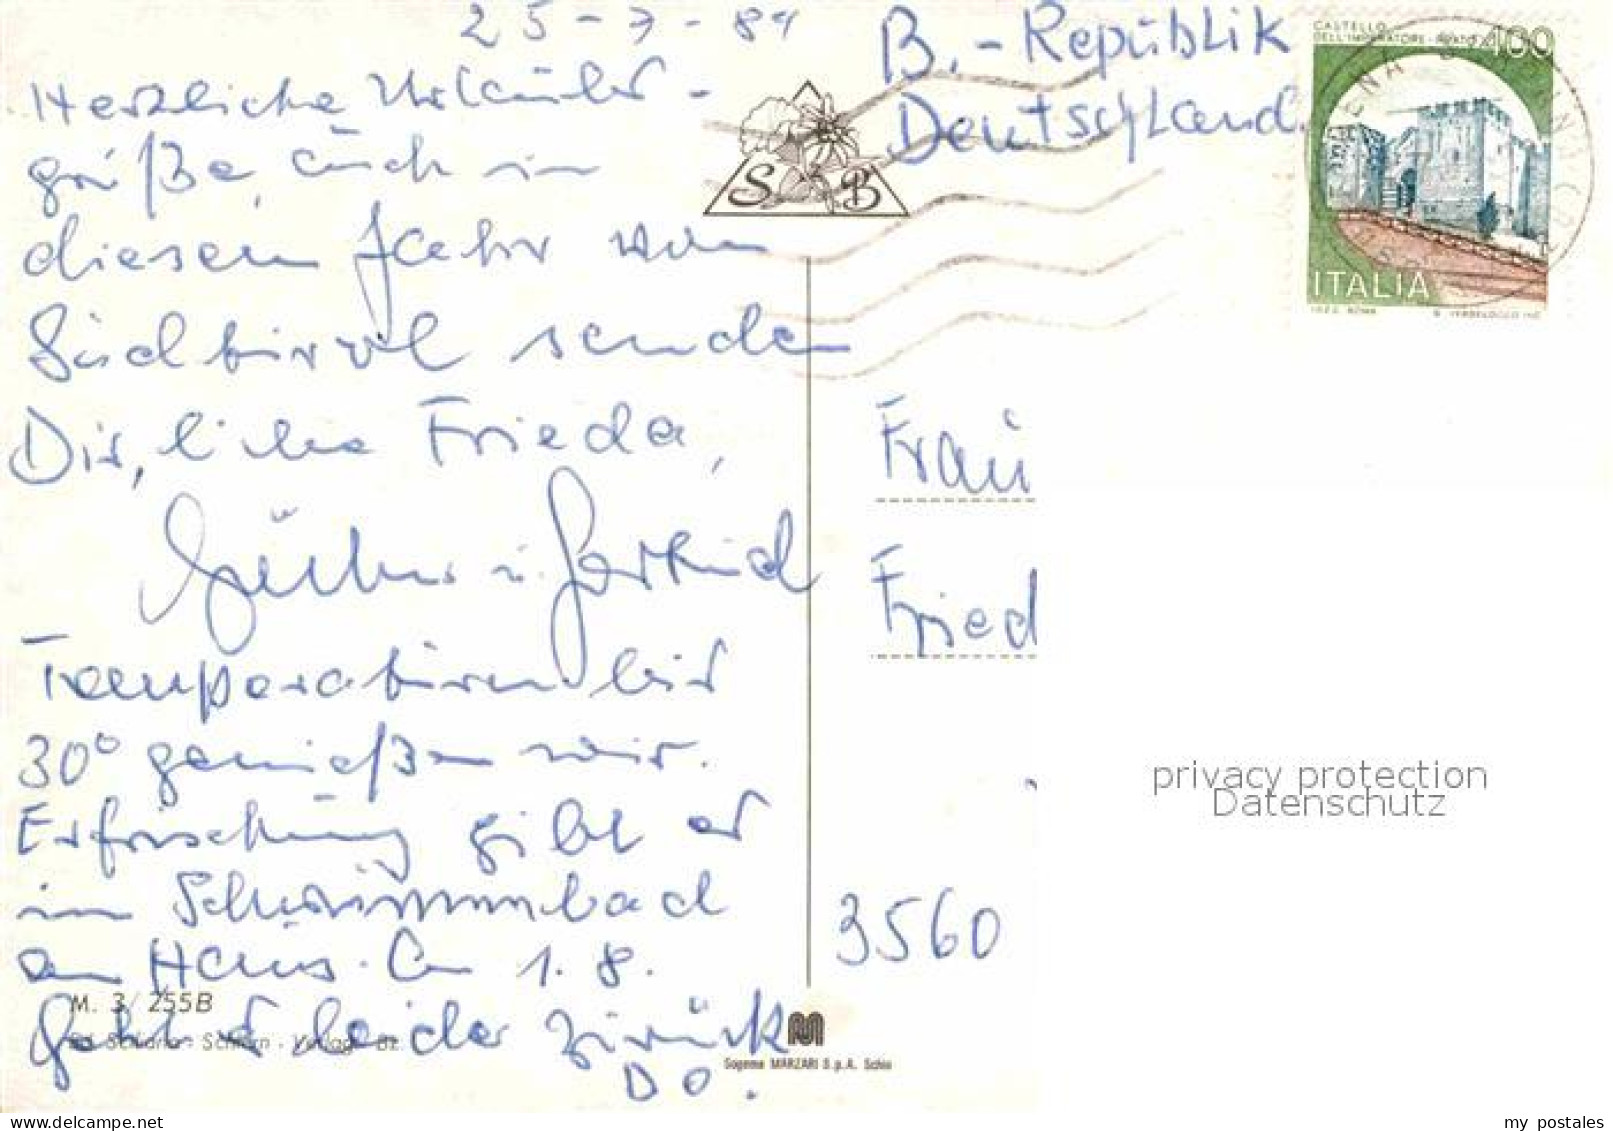 25-7-84
Herzliche Urlauber-
grüße, auch in
diesem Jahr von
Südtirol senden
Dir, liebe Frieda,
Günther u. Gertrud
Temperaturen bis
30° genießen wir.
Erfrischung gibt es
im Schwimmbad
am Haus. Am 1.8.
geht es leider zurück
Do.
M. 3/255B
Ed. Sciliaria - Schlern - Verlag - Bz.
S B
B.-Republik
Deutschland
CASTELLO
DELL'IMPERATORE - PRATO
100
ITALIA
I.P.Z.S. ROMA
Frau
Fried
3560
Sogema MARZARI S.p.A. Schio
privacy protection
Datenschutz
my postales